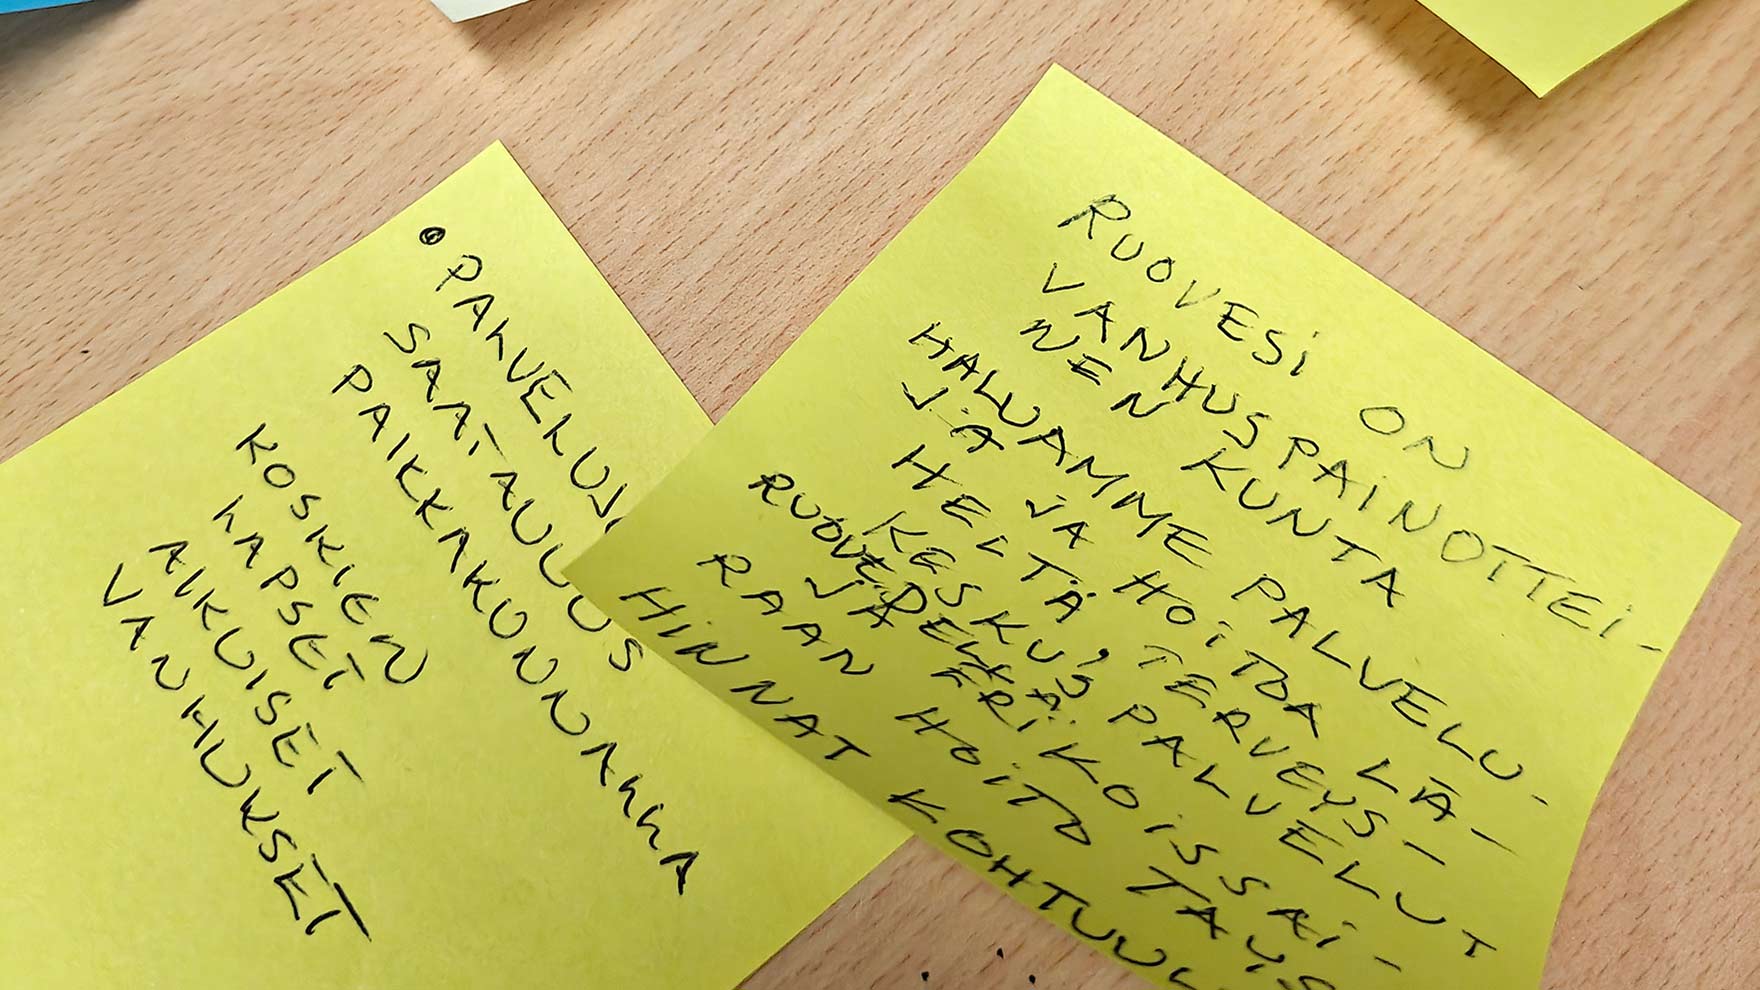 PALVELUJ
SAATAVUUS
PAIKKAKUNNALLA
KOSKIEN
LAPSET
AIKUISET
VANHUKSET
RUOVESI ON
VANHUSPAINOTTEI-
NEN KUNTA
HALUAMME PALVELU-
JA JA HOITOA LÄ-
HELTÄ. TERVEYS-
KESKUS PALVELUT
RUOVEDELLÄ
JA ERIKOISSAI-
RAAN HOITO TAYS
HINNAT KOHTUUL